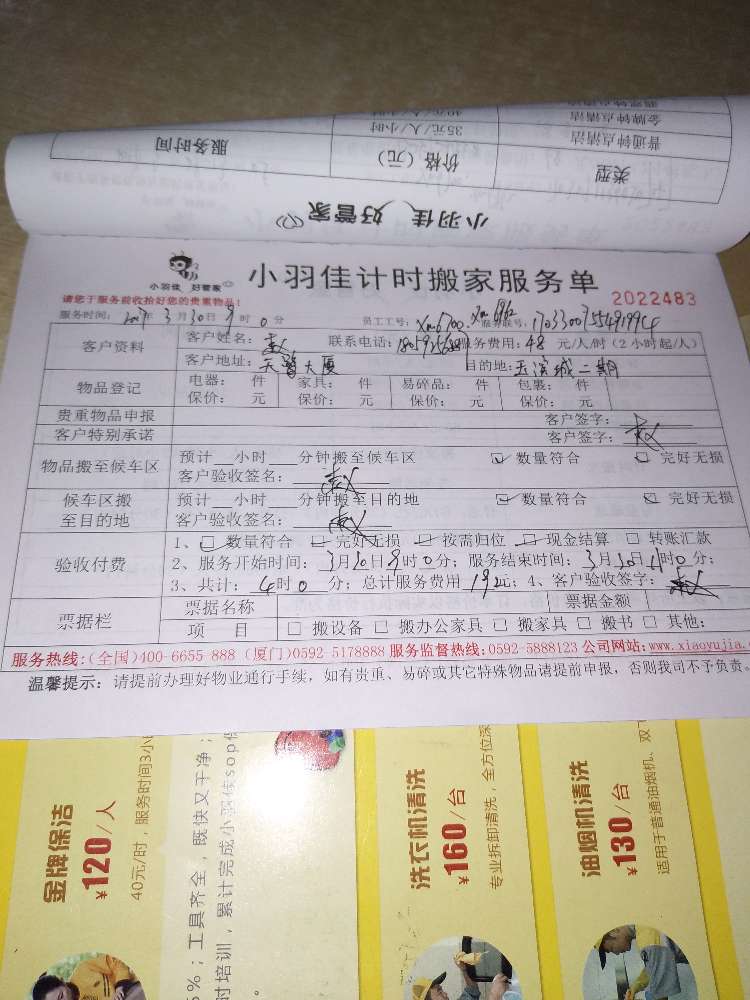 翡翠钟点清洁
金牌钟点清洁 40元/人/小时
普通钟点清洁 35元/人/小时
类型 价格（元） 服务时间
小羽佳 好管家
小羽佳 好管家
小羽佳计时搬家服务单
2022483
请您于服务前收拾好您的贵重物品！
服务时间： 3月30日9时0分 员工工号：Xm6700 Xm6962 服务联号：
客户资料 客户姓名： 联系电话： 服务费用：48 元/人/时（2小时起/人）
客户地址： 大厦 目的地： 二期
物品登记 电器： 件 家具： 件 易碎品： 件 包裹： 件
保价： 元 保价： 元 保价： 元 保价： 元
贵重物品申报 客户签字：
客户特别承诺 客户签字：
物品搬至候车区 预计 小时 分钟搬至候车区 数量符合 完好无损
客户验收签名：
候车区搬至目的地 预计 小时 分钟搬至目的地 数量符合 完好无损
客户验收签名：
验收付费 1、 数量符合 完好无损 按需归位 现金结算 转账汇款
2、服务开始时间：3月30日9时0分；服务结束时间：3月30日11时0分；
3、共计：4时0分；总计服务费用192元；4、客户验收签字：
票据栏 票据名称 票据金额
项 目 搬设备 搬办公家具 搬家具 搬书 其他：
服务热线：（全国）400-6655-888（厦门）0592-5178888 服务监督热线：0592-5888123 公司网站：www.xiaoyujia.
温馨提示：请提前办理好物业通行手续，如有贵重、易碎或其它特殊物品请提前申报，否则我司不予负责。
金牌保洁
¥120/人
40元/时，服务时间3小
%；工具齐全，既快又干净；
时培训，累计完成小羽佳sop
洗衣机清洗
¥160/台
专业拆卸清洗，全方位深
油烟机清洗
¥130/台
适用于普通油烟机、双